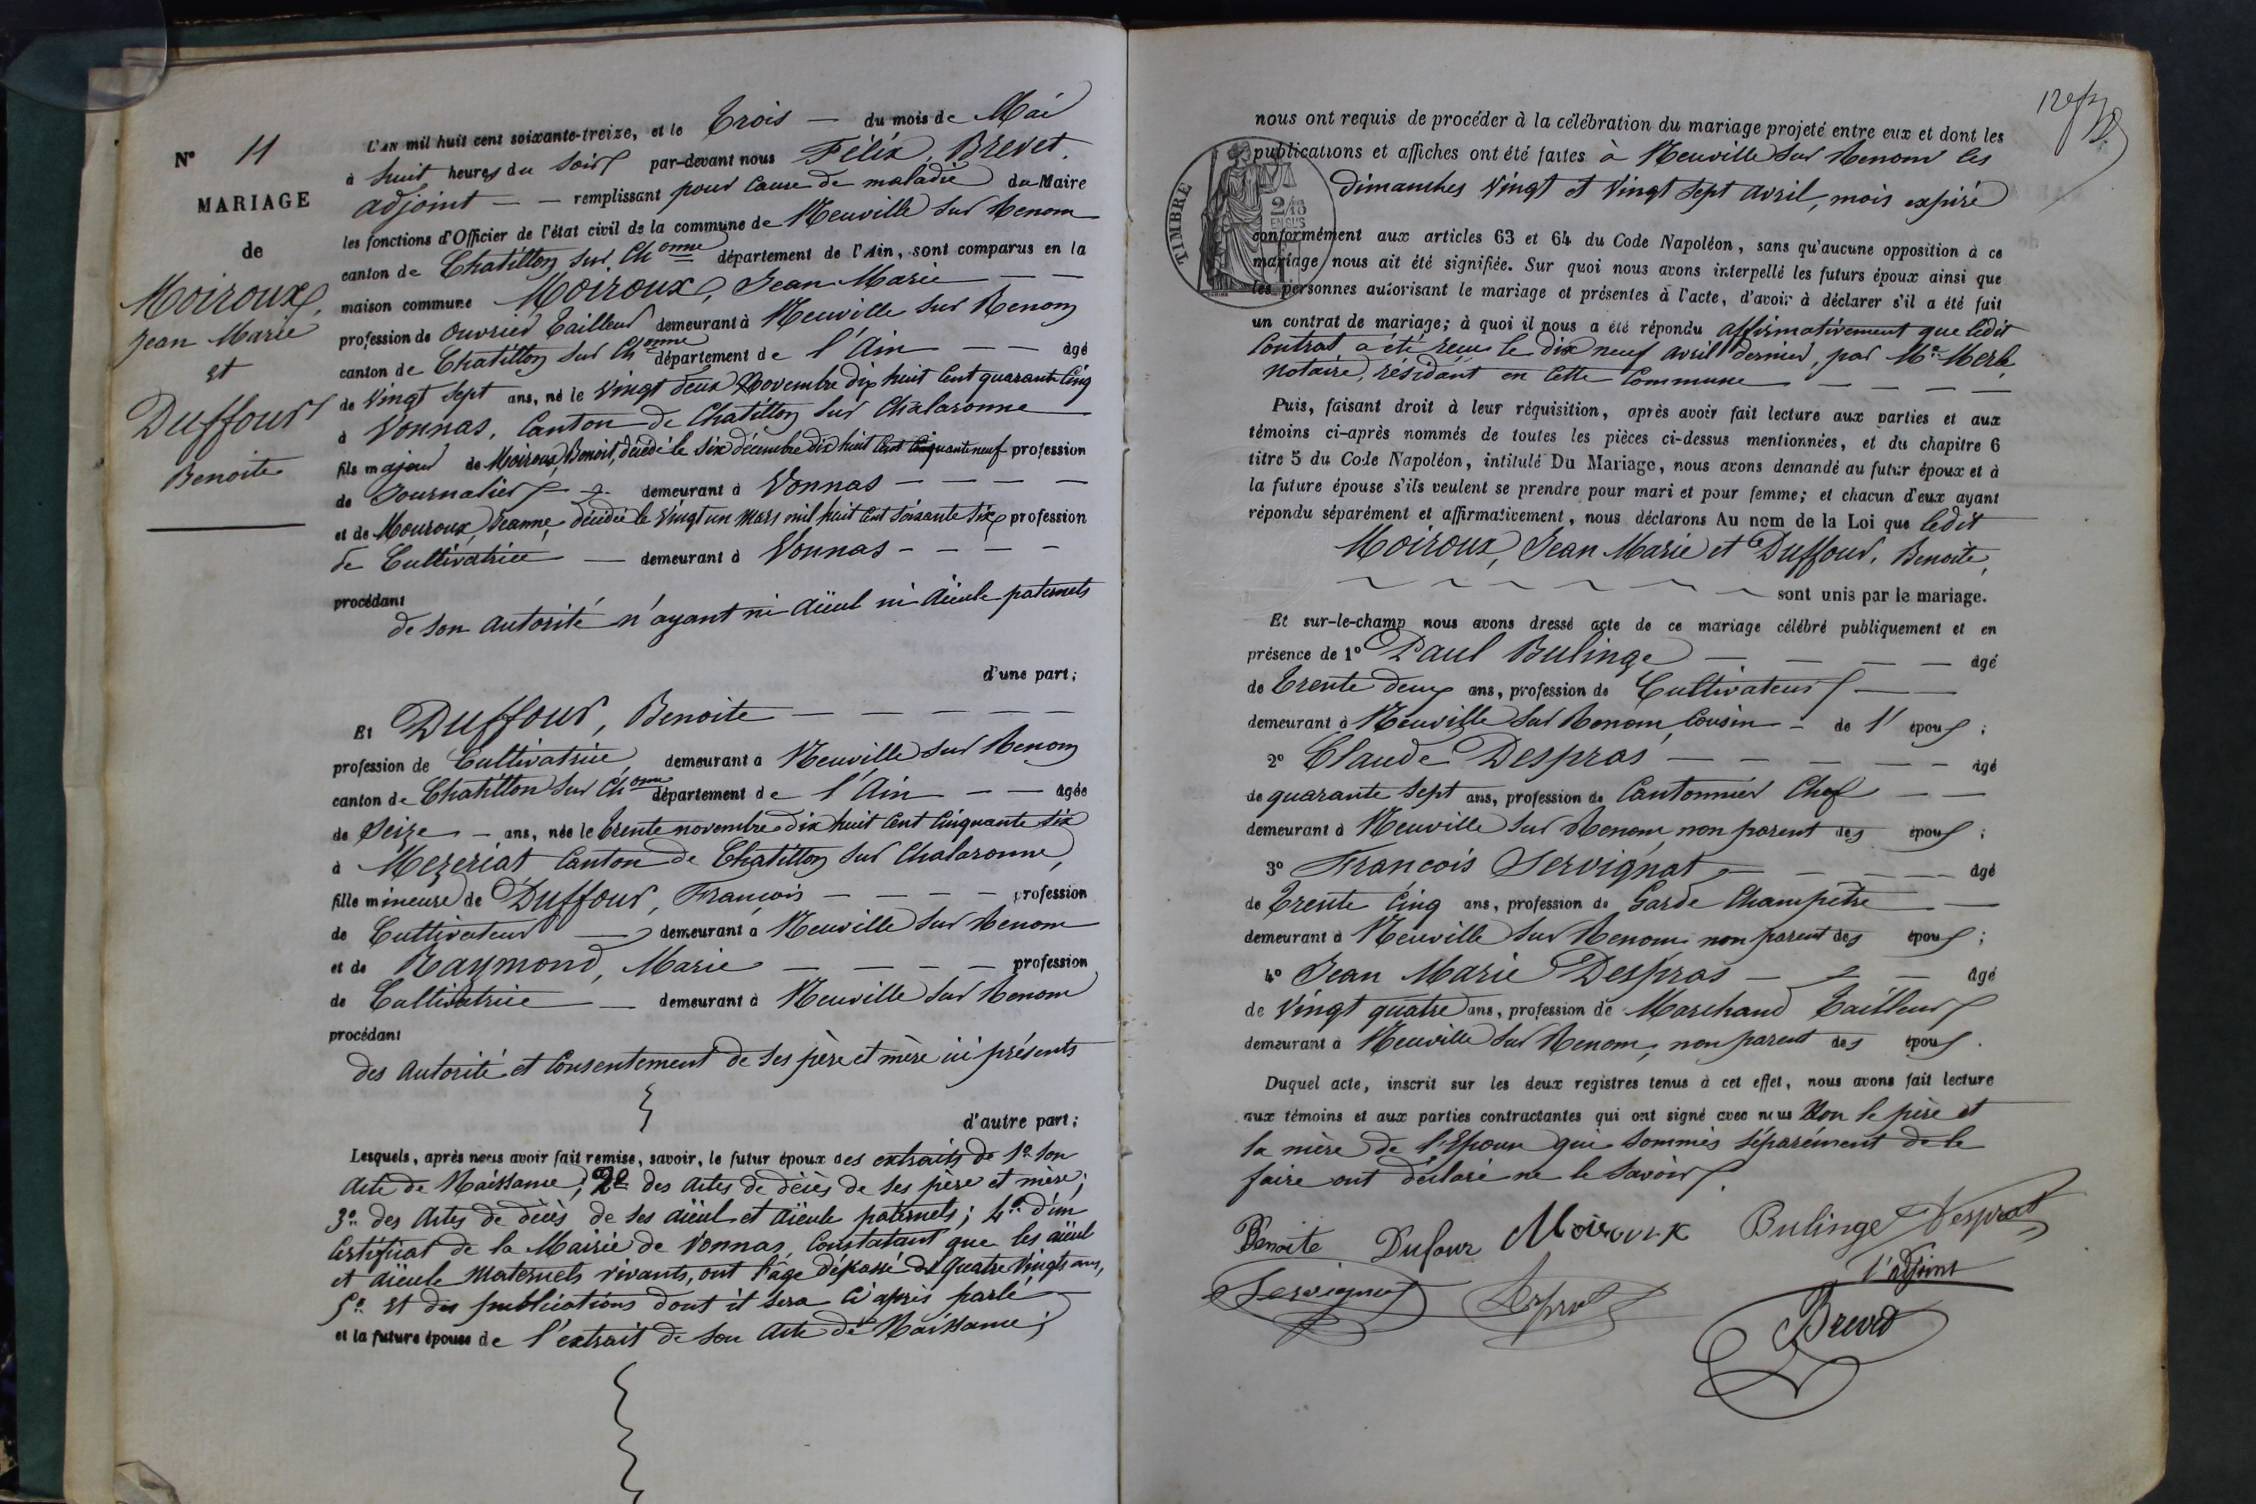 N° 11
MARIAGE
de
Moiroux,
Jean Marie
et
Duffour
Benoite
L'an mil huit cent soixante-treize, et le Trois — du mois de Mai
à huit heures du soir par-devant nous Félix, Brevet,
adjoint — — remplissant pour cause de maladie du Maire
les fonctions d'Officier de l'état civil de la commune de Neuville sur Renom
canton de Chatillon sur Chonne département de l'Ain, sont comparus en la
maison commune Moiroux, Jean Marie — —
profession de ouvrier Tailleur demeurant à Neuville sur Renom
canton de Chatillon sur Chonne département de l'Ain — — âgé
de Vingt sept ans, né le vingt deux Novembre dix huit cent quarante cinq
à Vonnas, Canton de Chatillon sur Chalaronne
fils majeur de Moiroux, Benoit, décédé le six décembre dix huit cent cinquante neuf profession
de Journalier — demeurant à Vonnas — — — —
et de Mouroux, Jeanne, décédée le vingt un mars mil huit cent soixante six profession
de Cultivatrice — demeurant à Vonnas — — — —
procédant
de son autorité n'ayant ni aïeul ni aïeule paternels
d'une part;
Et Duffour, Benoite — — — — —
profession de Cultivatrice, demeurant à Neuville sur Renom
canton de Chatillon sur Chonne département de l'Ain — — âgée
de Seize — ans, née le trente novembre dix huit cent cinquante six
à Mezeriat Canton de Chatillon sur Chalaronne,
fille mineure de Duffour, François — — — — profession
de Cultivateur — demeurant à Neuville sur Renom
et de Raymond, Marie — — — — profession
de Cultivatrice — demeurant à Neuville sur Renom
procédant
des autorité et consentement de ses père et mère ici présents
d'autre part;
Lesquels, après nous avoir fait remise, savoir, le futur époux des extraits de 1° son
acte de Naissance; 2° des actes de décès de ses père et mère;
3° des actes de décès de ses aïeul et aïeule paternels; 4° d'un
certificat de la Mairie de Vonnas, constatant que les aïeul
et aïeule maternels vivants, ont l'âge dépassé de quatre vingts ans,
5° et des publications dont il sera ci après parlé
et la future épouse de l'extrait de son acte de Naissance;
nous ont requis de procéder à la célébration du mariage projeté entre eux et dont les
publications et affiches ont été faites à Neuville sur Renom les
dimanches vingt et vingt sept avril, mois expiré
TIMBRE
2/10
EN SUS
conformément aux articles 63 et 64 du Code Napoléon, sans qu'aucune opposition à ce
mariage nous ait été signifiée. Sur quoi nous avons interpellé les futurs époux ainsi que
les personnes autorisant le mariage et présentes à l'acte, d'avoir à déclarer s'il a été fait
un contrat de mariage; à quoi il nous a été répondu affirmativement que ledit
contrat a été reçu le dix neuf avril dernier, par Me Merle,
notaire, résidant en cette Commune — — — —
Puis, faisant droit à leur réquisition, après avoir fait lecture aux parties et aux
témoins ci-après nommés de toutes les pièces ci-dessus mentionnées, et du chapitre 6
titre 5 du Code Napoléon, intitulé Du Mariage, nous avons demandé au futur époux et à
la future épouse s'ils veulent se prendre pour mari et pour femme; et chacun d'eux ayant
répondu séparément et affirmativement, nous déclarons Au nom de la Loi que ledit
Moiroux, Jean Marie et Duffour, Benoite,
sont unis par le mariage.
Et sur-le-champ nous avons dressé acte de ce mariage célébré publiquement et en
présence de 1° Paul Bulinge — — — — âgé
de Trente deux ans, profession de Cultivateur — —
demeurant à Neuville sur Renom, cousin — de l' époux;
2° Claude Despras — — — — — âgé
de quarante sept ans, profession de Cantonnier Chef — —
demeurant à Neuville sur Renom, non parent des époux;
3° François Servignat — — — — âgé
de Trente Cinq ans, profession de Garde Champêtre — —
demeurant à Neuville sur Renom non parent des époux;
4° Jean Marie Despras — — — âgé
de vingt quatre ans, profession de Marchand Tailleur
demeurant à Neuville sur Renom, non parent des époux.
Duquel acte, inscrit sur les deux registres tenus à cet effet, nous avons fait lecture
aux témoins et aux parties contractantes qui ont signé avec nous non le père et
la mère de l'Epouse qui sommés séparément de le
faire ont déclaré ne le savoir.
Benoite Dufour Moiroux Bulinge Despras
l'adjoint
Servignat Despras
Brevet